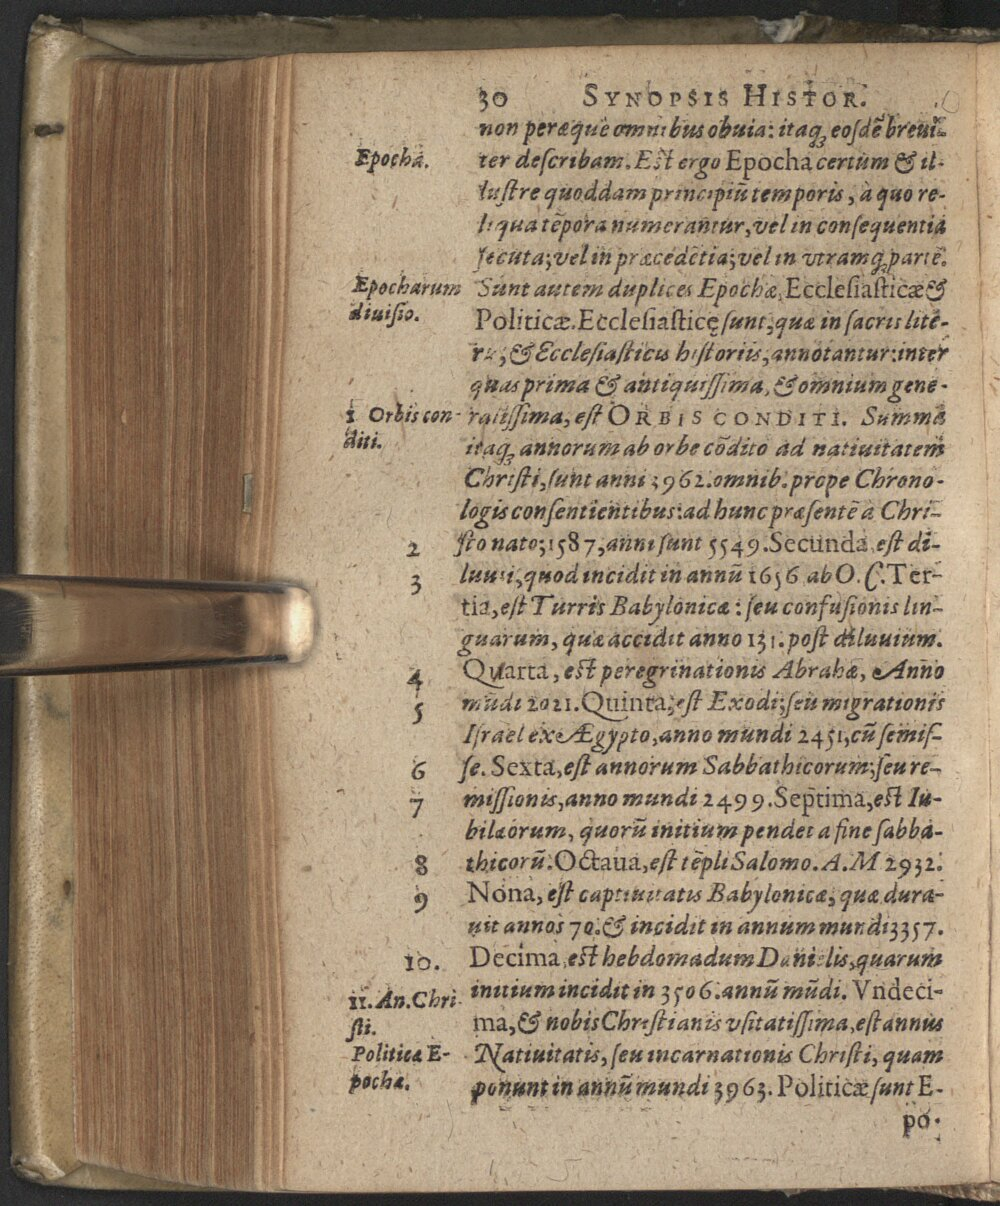 30 SYNOPSIS HISTOR.
non peræque omnibus obuia: itaq; eosdē breui-
Epocha.
ter describam. Est ergo Epocha certum & il-
lustre quoddam principiū temporis, à quo re-
liqua tēpora numerantur, vel in consequentia
secuta; vel in præcedētia; vel in vtramq; partē.
Epocharum
Sunt autem duplices Epochæ, Ecclesiasticæ &
diuisio.
Politicæ. Ecclesiasticę sunt, quæ in sacris lite-
ris, & Ecclesiasticis historiis, annotantur: inter
quas prima & antiquissima, & omnium gene-
1 Orbis con-
ralissima, est ORBIS CONDITI. Summa
diti.
itaq; annorum ab orbe cōdito ad natiuitatem
Christi, sunt anni 3962. omnib. prope Chrono-
logis consentientibus: ad hunc præsentē à Chri-
2
sto nato; 1587, anni sunt 5549. Secunda est di-
3
luuii, quod incidit in annū 1656 ab O. C. Ter-
tia, est Turris Babylonicæ: seu confusionis lin-
guarum, quæ accidit anno 131. post diluuium.
4
Quarta, est peregrinationis Abrahæ, Anno
5
mūdi 2021. Quinta, est Exodi; seu migrationis
Israel ex Ægypto, anno mundi 2451, cū semis-
6
se. Sexta, est annorum Sabbathicorum; seu re-
7
missionis, anno mundi 2499. Septima, est Iu-
bilæorum, quorū initium pendet a fine sabba-
8
thicorū. Octaua, est tēpli Salomo. A. M 2932.
9
Nona, est captiuitatis Babylonicæ, quæ dura-
uit annos 70. & incidit in annum mundi 3357.
10.
Decima, est hebdomadum Danielis, quarum
11. An. Chri-
initium incidit in 3506. annū mūdi. Vndeci-
sti.
ma, & nobis Christianis vsitatissima, est annus
Politicæ E-
Natiuitatis, seu incarnationis Christi, quam
pochæ.
ponunt in annū mundi 3963. Politicæ sunt E-
po-